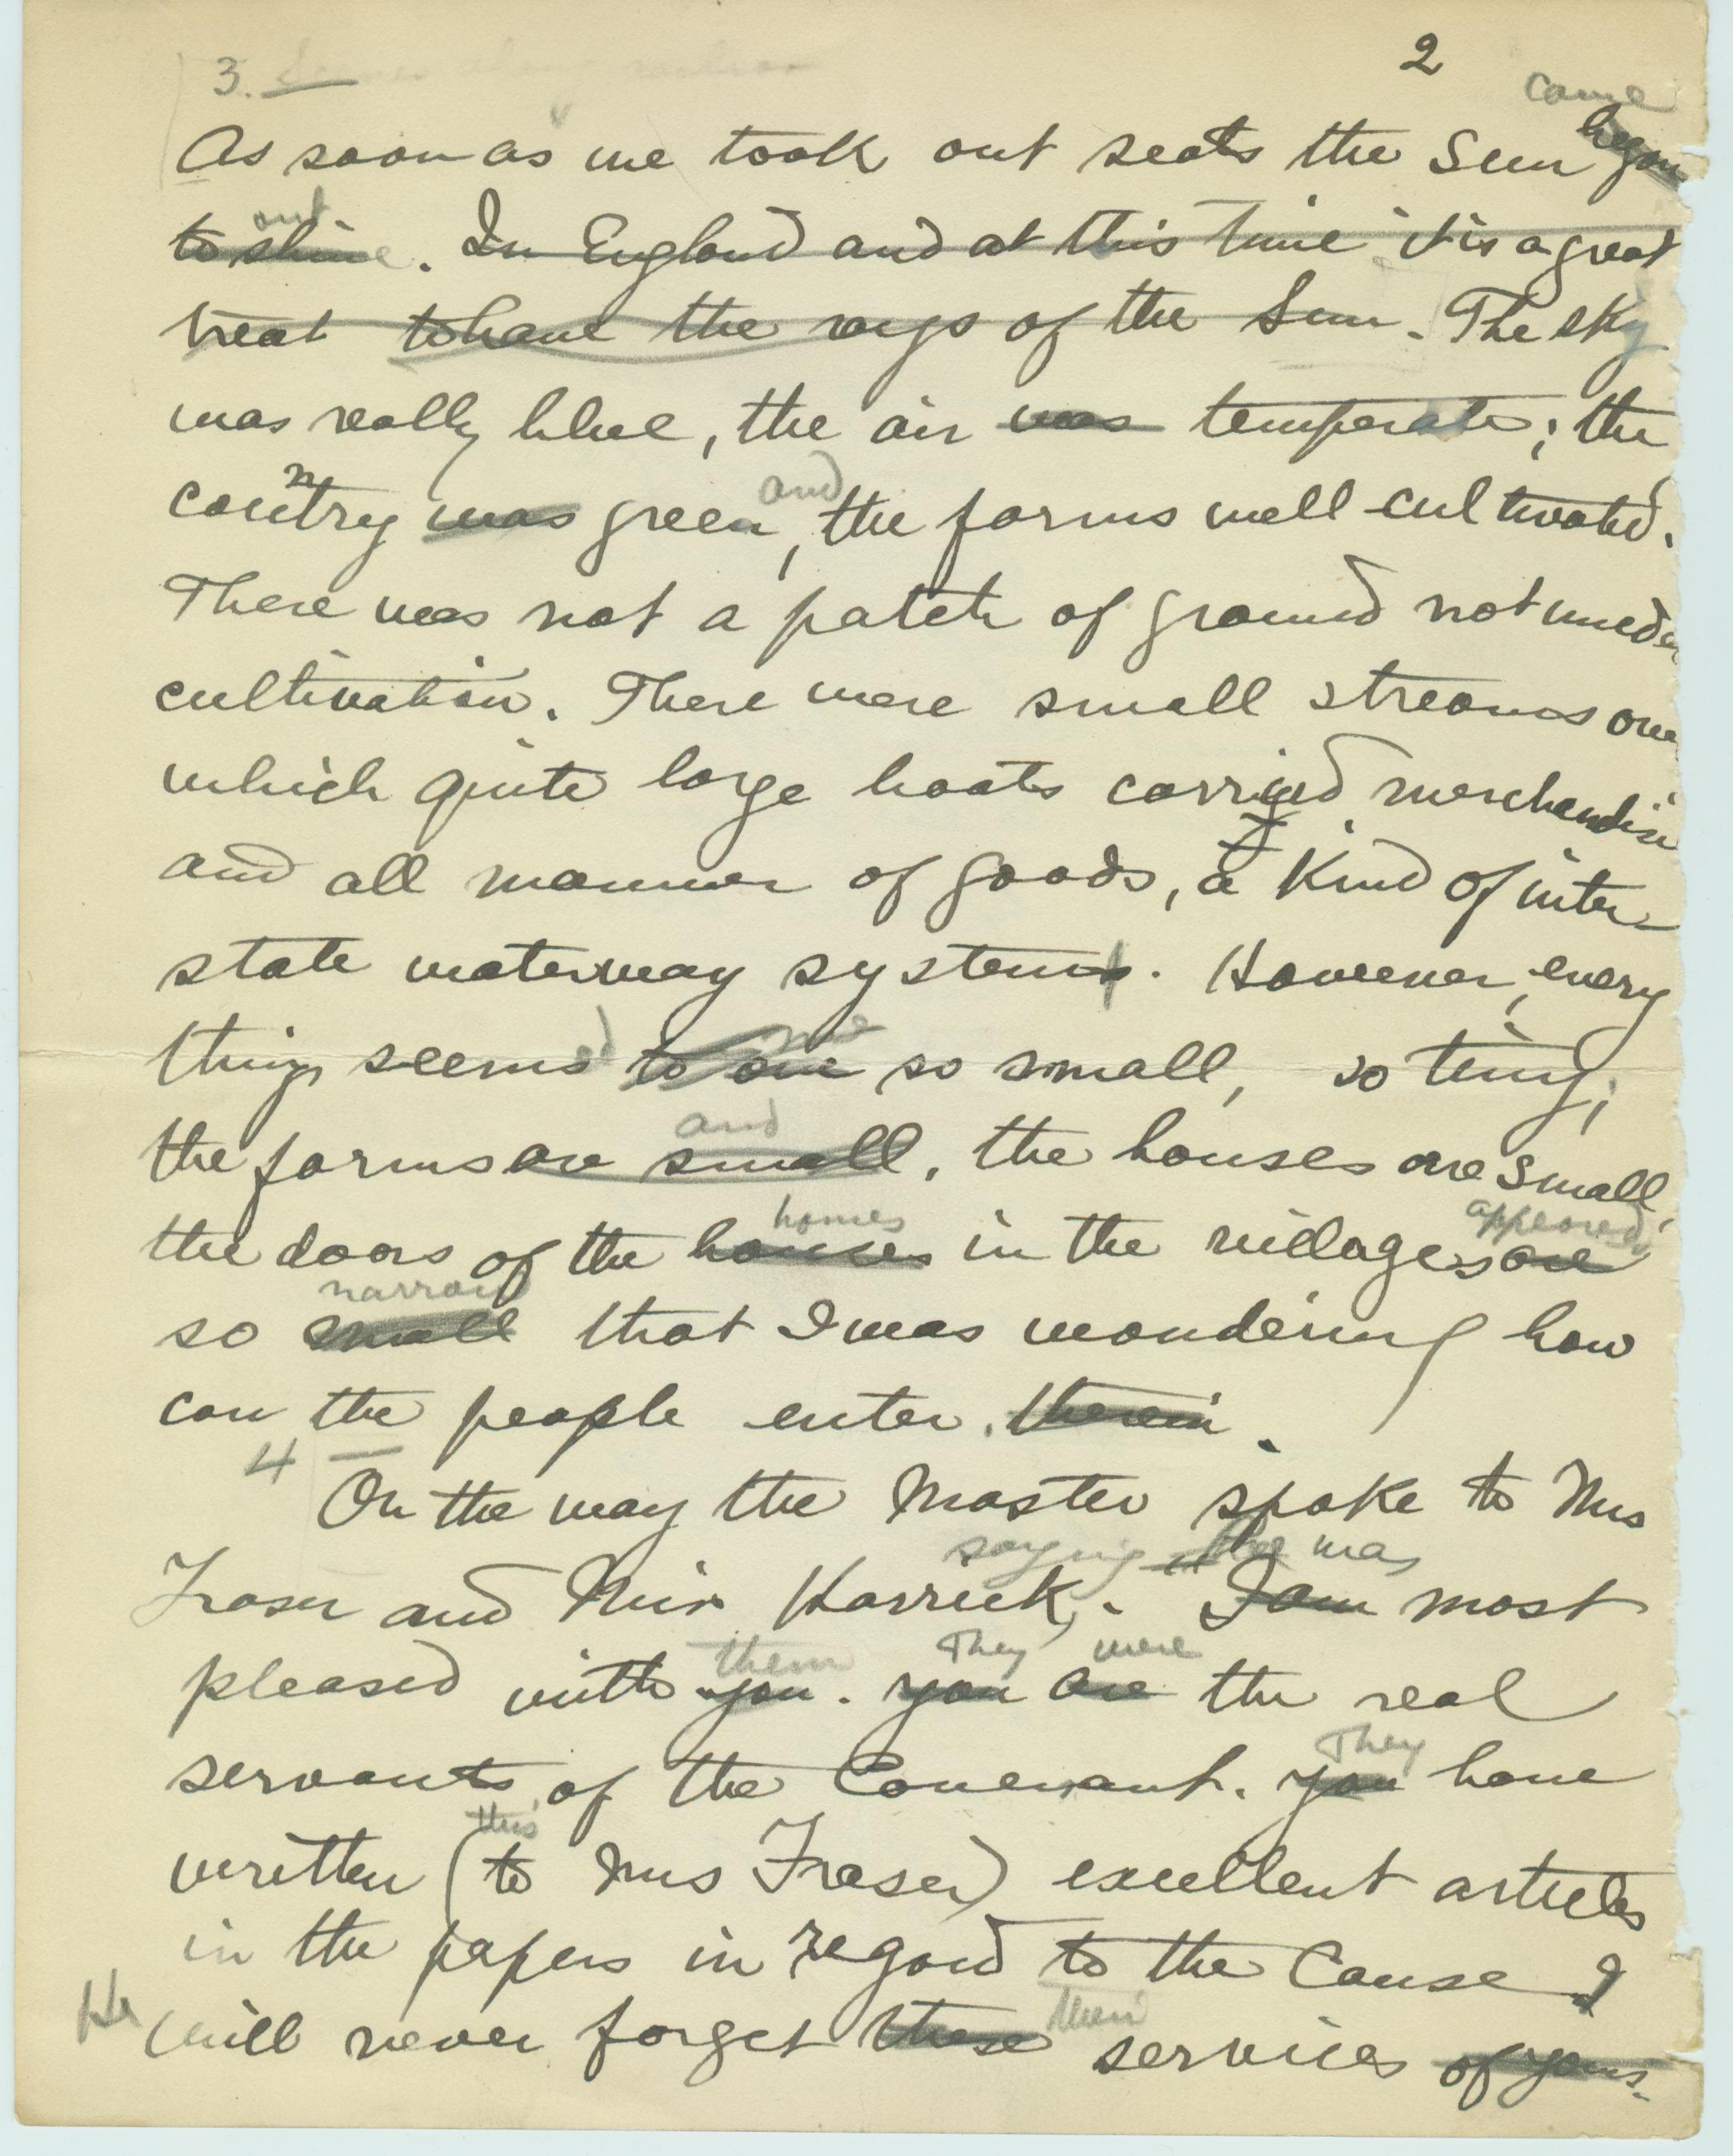 2
3.
came
As soon as we took out seats the Sun began
out
to shine. In England and at this time it is a great
treat to have the rays of the Sun. The sky
was really blue, the air was temperate; the
n
coutry was green, and the farms well cultivated.
There was not a patch of ground not uneder
cultivation. There were small streams over
which quite large boats carried merchandise
and all manner of goods, a kind of inter-
state waterway systems. However, every
thing seemsed to one me so small, so tiny;
and
the farms are small, the houses are small,
homes appeared
the doors of the houses in the villages are
narrow
so small that I was wondering how
can the people enter. therein.
4
On the way the Master spoke to Mrs
saying he was
Fraser and Miss Harrick. "I am most
them They were
pleased with you. You are the real
They
servants of the Covenant. You have
this
written (to Mrs Fraser) excellent articles
in the papers in regard to the Cause I
He their
will never forget these services of yours.